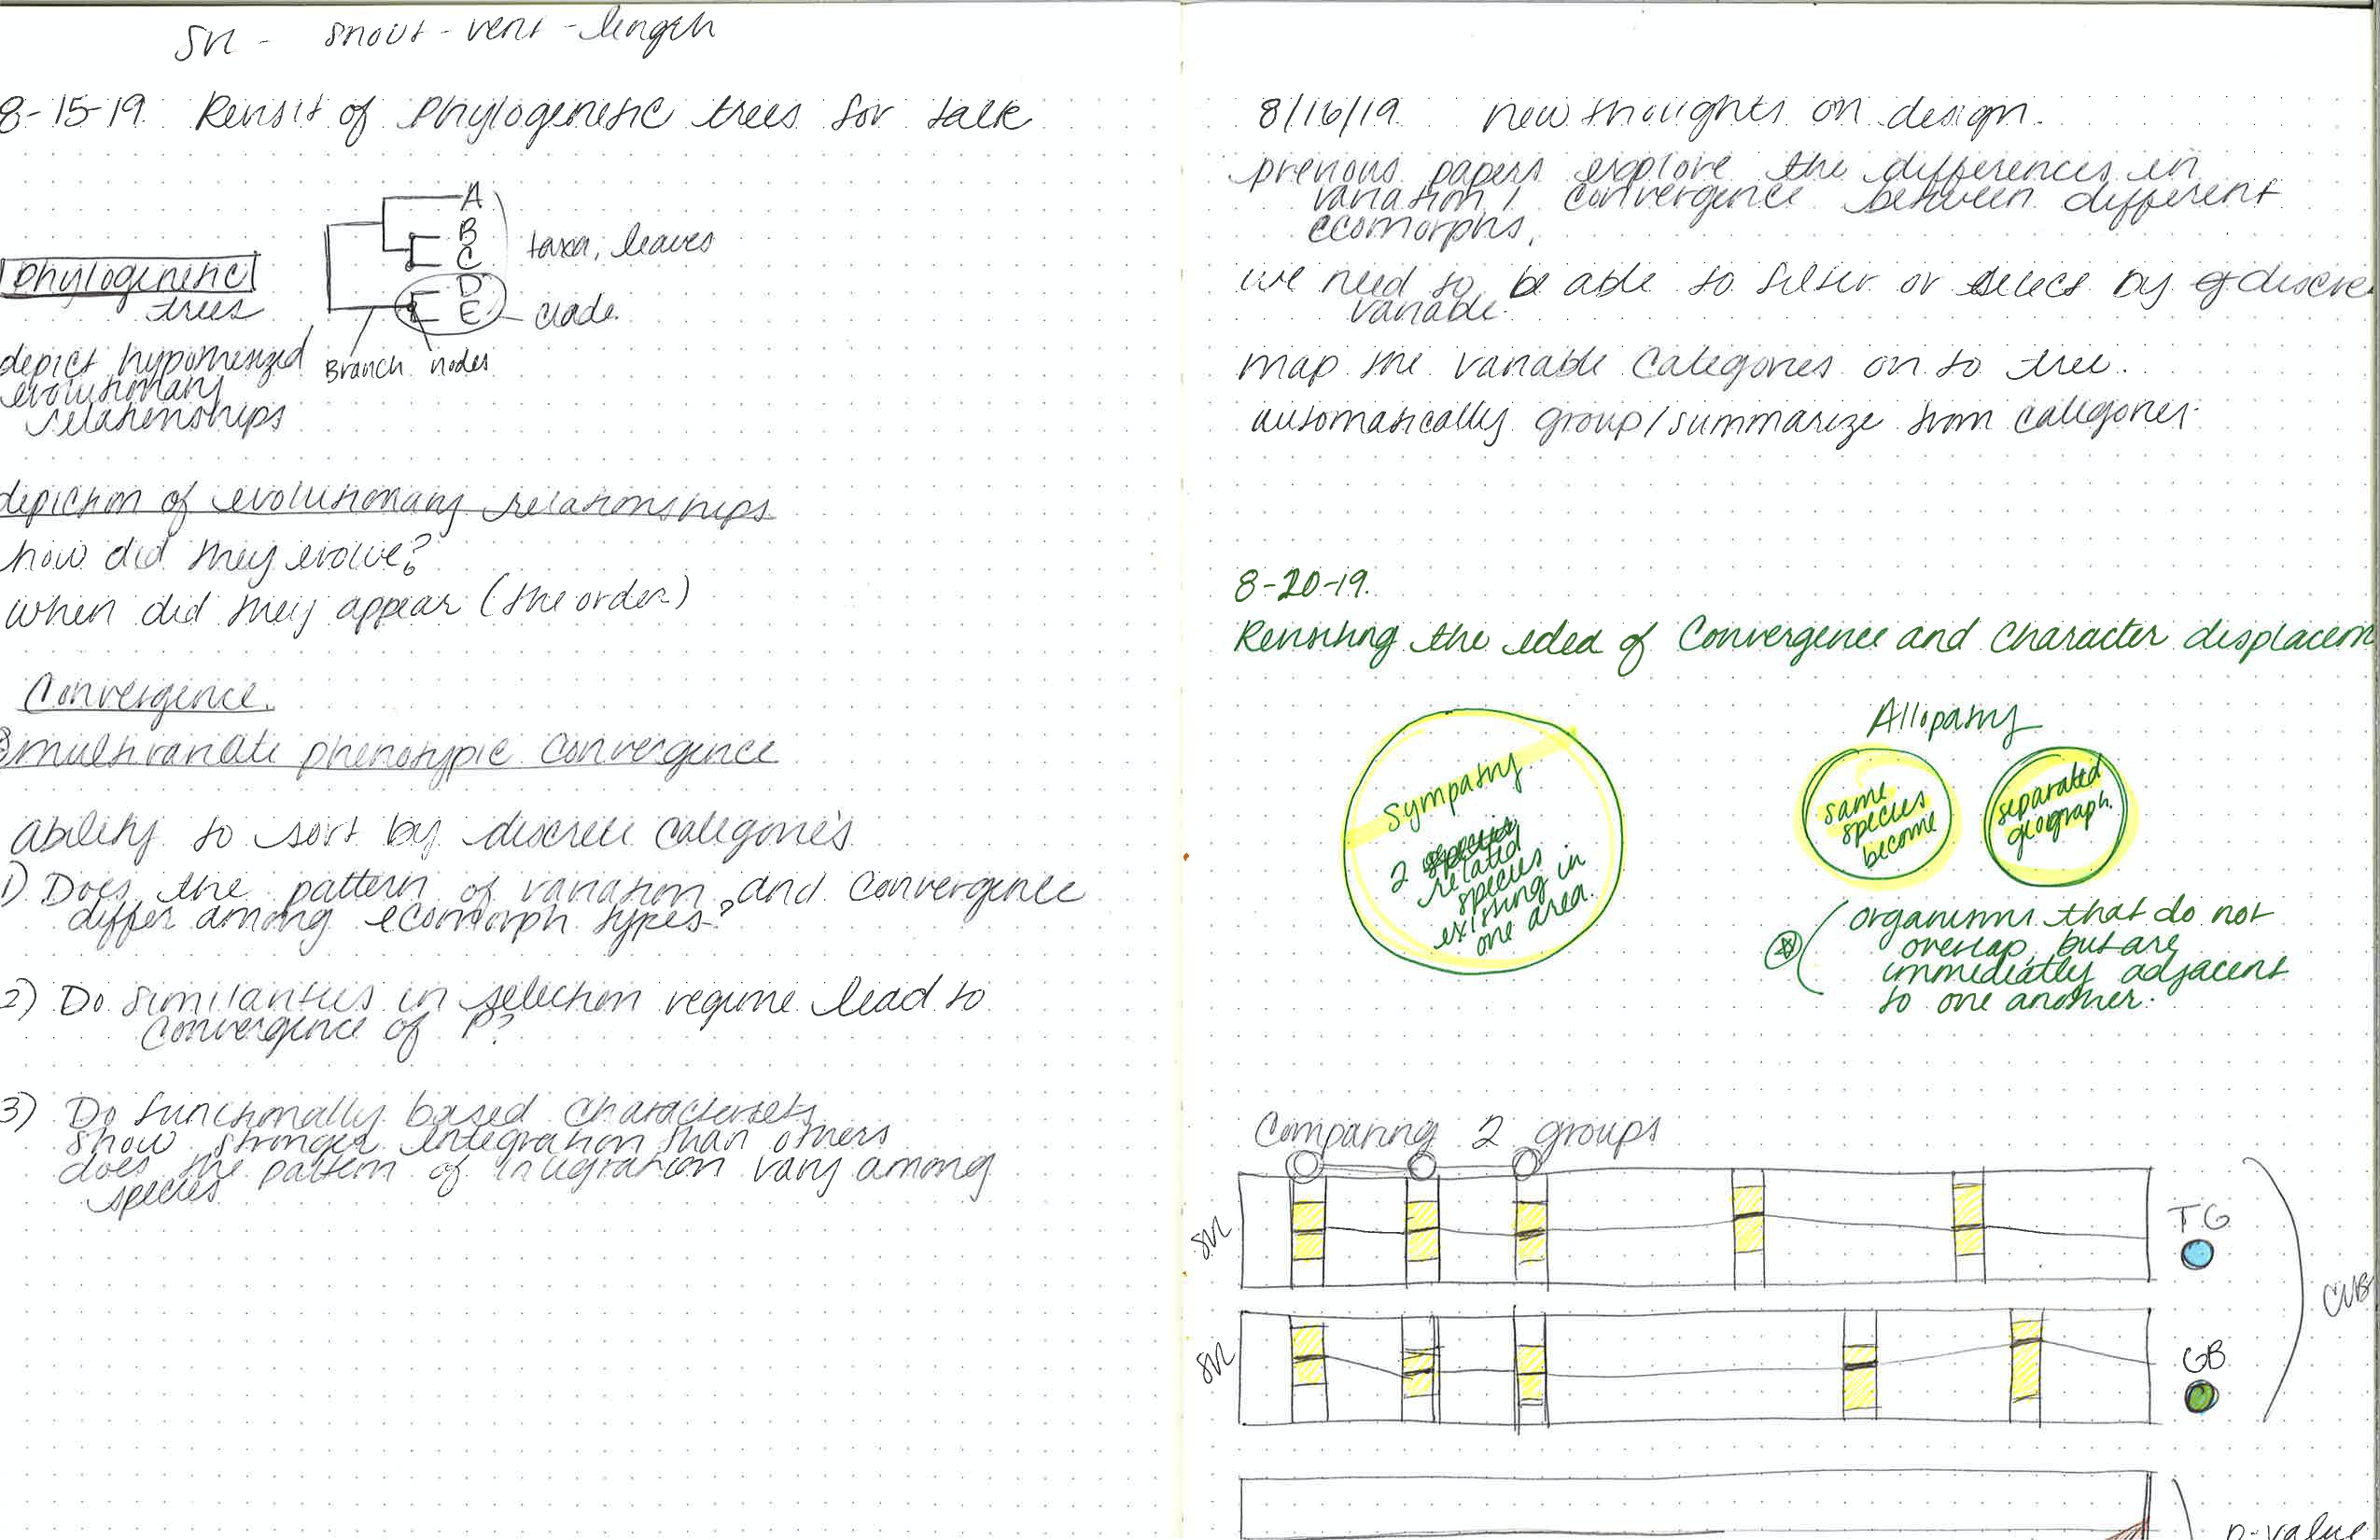 SVL - snout-vent-length
8-15-19 Revisit of Phylogenetic trees for talk
A
B
C
taxa, leaves
D
E
clade
phylogenetic
trees
Branch nodes
depict hypothesized
evolutionary
relationships
depiction of evolutionary relationships
how did they evolve?
when did they appear (the order)
Convergence.
multivariate phenotypic convergence
ability to sort by discrete categories
1) Does the pattern of variation and convergence
differ among ecomorph types?
2) Do similarities in selection regime lead to
convergence of P?
3) Do functionally based characters
show stronger integration than others
does the pattern of integration vary among
species
8/16/19 new thoughts on design.
previous papers explore the differences in
variation / convergence between different
ecomorphs.
we need to be able to filter or select by discre
variable.
map the variable categories on to tree.
automatically group/summarize from categories.
8-20-19.
Revisiting the idea of Convergence and Character displacem
Sympatry
2
related
species
existing in
one area.
Allopatry
same
species
become
separated
geograph.
organisms that do not
overlap, but are
immediatly adjacent
to one another.
Comparing 2 groups
SVL
TG
SVL
GB
CUB
p-value